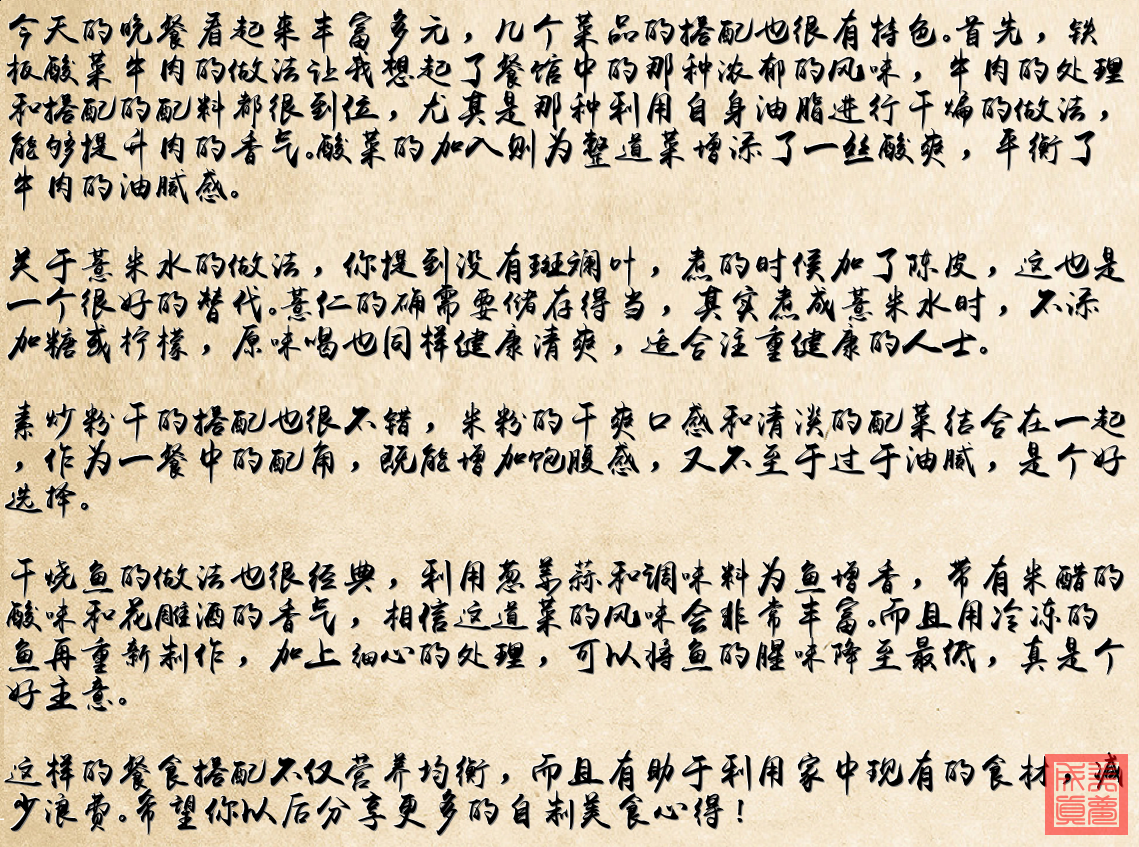 今天的晚餐看起来丰富多元，几个菜品的搭配也很有特色。首先，铁
板酸菜牛肉的做法让我想起了餐馆中的那种浓郁的风味，牛肉的处理
和搭配的配料都很到位，尤其是那种利用自身油脂进行干煸的做法，
能够提升肉的香气。酸菜的加入则为整道菜增添了一丝酸爽，平衡了
牛肉的油腻感。
关于薏米水的做法，你提到没有斑斓叶，煮的时候加了陈皮，这也是
一个很好的替代。薏仁的确需要储存得当，其实煮成薏米水时，不添
加糖或柠檬，原味喝也同样健康清爽，适合注重健康的人士。
素炒粉干的搭配也很不错，米粉的干爽口感和清淡的配菜结合在一起
，作为一餐中的配角，既能增加饱腹感，又不至于过于油腻，是个好
选择。
干烧鱼的做法也很经典，利用葱姜蒜和调味料为鱼增香，带有米醋的
酸味和花雕酒的香气，相信这道菜的风味会非常丰富。而且用冷冻的
鱼再重新制作，加上细心的处理，可以将鱼的腥味降至最低，真是个
好主意。
这样的餐食搭配不仅营养均衡，而且有助于利用家中现有的食材，减
少浪费。希望你以后分享更多的自制美食心得！